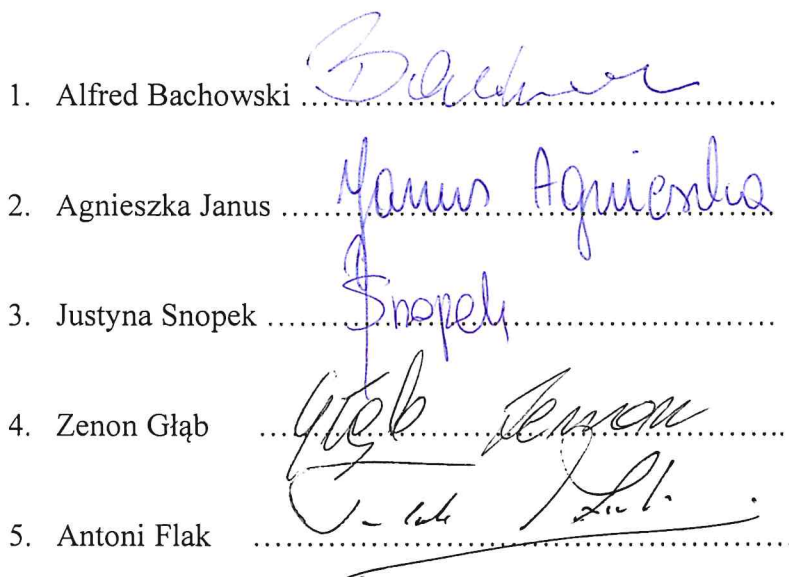 1. Alfred Bachowski ........ Bachow
2. Agnieszka Janus ........ Janus Agnieszka
3. Justyna Snopek ........ Snopek
4. Zenon Głąb ........ Głąb Zenon
5. Antoni Flak ........